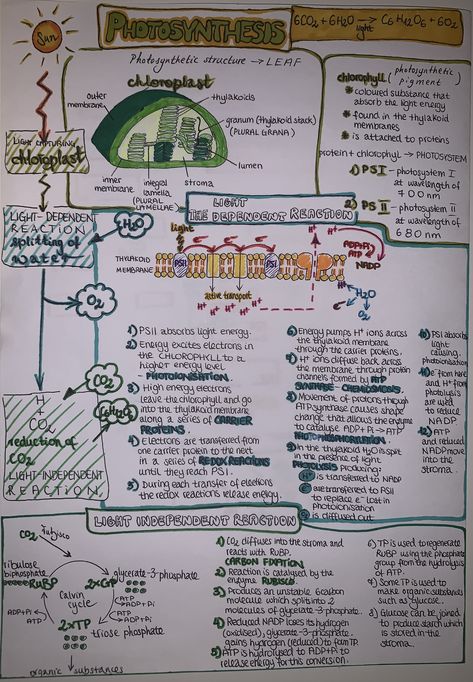 Sun
PHOTOSYNTHESIS
6CO₂ + 6H₂O → C₆H₁₂O₆ + 6O₂
light
Photosynthetic structure → LEAF
chloroplast
outer
membrane
thylakoids
granum (thylakoid stack)
(PLURAL GRANA)
lumen
inner
membrane
integral
lamella
(PLURAL
LAMELLAE)
stroma
chlorophyll (photosynthetic
pigment)
coloured substance that
absorb the light energy
found in the thylakoid
membranes
is attached to proteins
protein + chlorophyll → PHOTOSYSTEM
1) PS I - photosystem I
at wavelength of
700nm
2) PS II - photosystem II
at wavelength of
680nm
LIGHT CAPTURING
chloroplast
LIGHT-DEPENDENT
REACTION
splitting of
water
H₂O
O₂
CO₂
C₆H₁₂O₆
H
+
CO₂
reduction of
CO₂
LIGHT-INDEPENDENT
REACTION.
THE LIGHT DEPENDENT REACTION
light
THYLAKOID
MEMBRANE
PSII
PSI
active transport
H⁺
ADP+Pi
ATP
NADP
H₂O
O₂
1) PSII absorbs light energy.
2) Energy excites electrons in
the CHLOROPHYLL to a
higher energy level
- PHOTOIONISATION
3) High energy electrons
leave the chlorophyll and go
into the thylakoid membrane
along a series of CARRIER
PROTEINS.
4) Electrons are transferred from
one carrier protein to the next
in a series of REDOX REACTIONS
until they reach PSI.
5) During each transfer of electrons
the redox reactions release energy.
6) Energy pumps H⁺ ions across
the thylakoid membrane
through the carrier proteins.
7) H⁺ ions diffuse back across
the membrane, through protein
channels formed by ATP
SYNTHASE - CHEMIOSMOSIS.
8) Movement of protons though
ATP synthase causes shape
change that allows the enzyme
to catalyse ADP+Pi → ATP
PHOTOPHOSPHORYLATION.
9) In the thylakoid H₂O is split
in the presence of light
PHOTOLYSIS producing:
H⁺ is transferred to NADP
e⁻ are transferred to PSII
to replace e⁻ lost in
photoionisation
O₂ is diffused out
PSI absorbs
light
causing
photoionisation
e⁻ from here
and H⁺ from
photolysis
are used
to reduce
NADP
ATP
and reduced
NADP move
into the
stroma.
LIGHT INDEPENDENT REACTION
CO₂
ribulose
biphosphate
RuBP
2xGP
glycerate-3-phosphate
Calvin
cycle
ATP
ADP+Pi
ATP
ADP+Pi
2xTP
triose phosphate
organic substances
1) CO₂ diffuses into the stroma and
reacts with RuBP.
CARBON FIXATION
2) Reaction is catalysed by the
enzyme RUBISCO
3) Produces an unstable 6carbon
molecule which split into 2
molecules of glycerate-3-phosphate.
4) Reduced NADP loses its hydrogen
(oxidised), glycerate-3-phosphate
gains hydrogen (reduced) to form TP.
5) ATP is hydrolysed to ADP+Pi to
release energy for this conversion.
6) TP is used to regenerate
RuBP using the phosphate
group from the hydrolysis
of ATP.
7) Some TP is used to
make organic substances
such as glucose.
8) Glucose can be joined
to produce starch which
is stored in the
stroma.